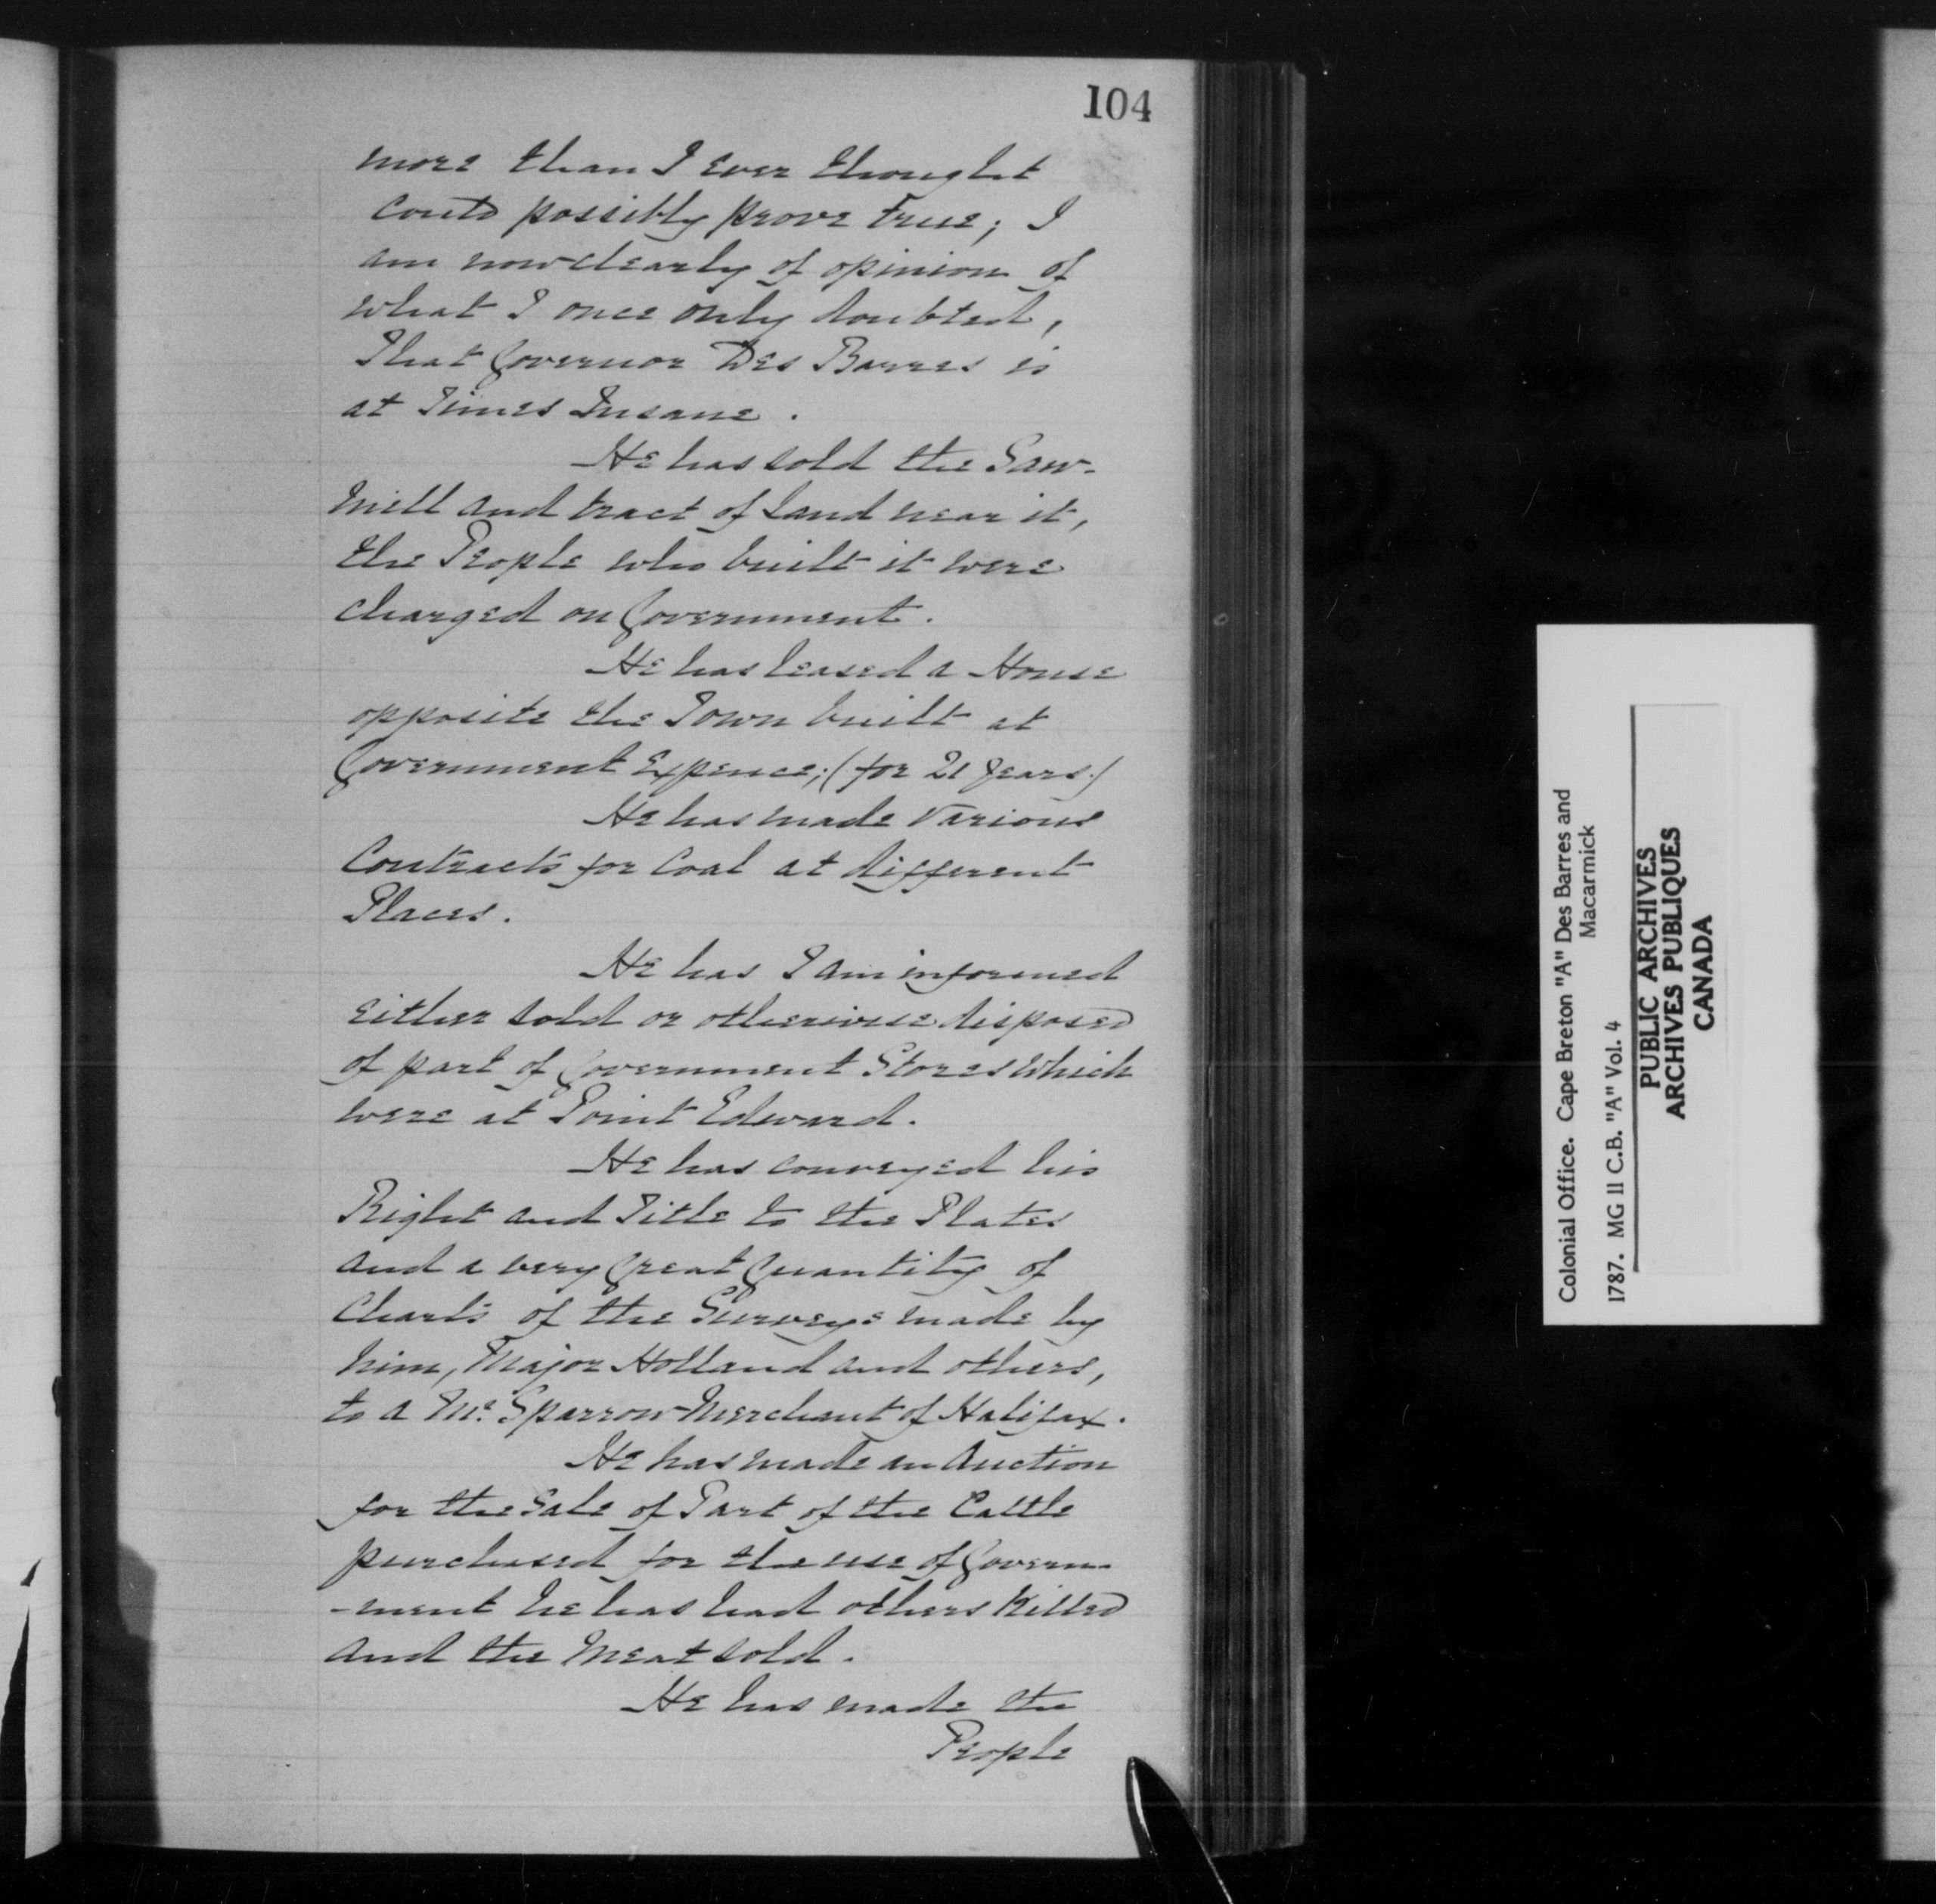 104
more than I ever thought
could possibly prove true; I
am now clearly of opinion of
what I once only doubted,
That Governor Des Barres is
at Times Insane.
He has sold the Saw-
Mill and tract of Land near it,
the People who built it were
charged on Government.
He has leased a House
opposite the Town built at
Government Expence; (for 21 Years.)
He has made Various
Contracts for Coal at different
Places.
He has I am informed
Either sold or otherwise disposed
of part of Government Stores which
were at Point Edward.
He has conveyed his
Right and Title to the Plates
and a very Great Quantity of
Charts of the Surveys made by
him, Major Holland and others,
to a Mr. Sparrow Merchant of Halifax.
He has made an Auction
for the Sale of Part of the Cattle
purchased for the use of Govern-
-ment he has had others Killed
and the Meat sold.
He has made the
People
Colonial Office. Cape Breton "A" Des Barres and
Macarmick
1787. MG 11 C.B. "A" Vol. 4
PUBLIC ARCHIVES
ARCHIVES PUBLIQUES
CANADA